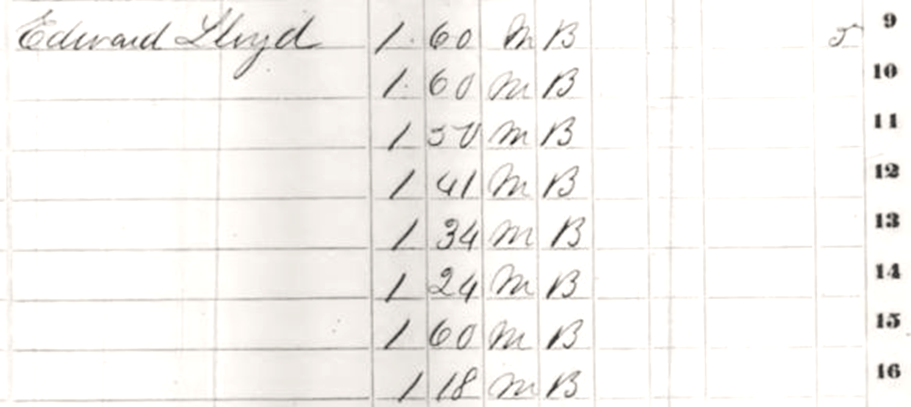 Edward Lloyd 1 60 M B 5 9
1 60 M B 10
1 50 M B 11
1 41 M B 12
1 34 M B 13
1 24 M B 14
1 60 M B 15
1 18 M B 16